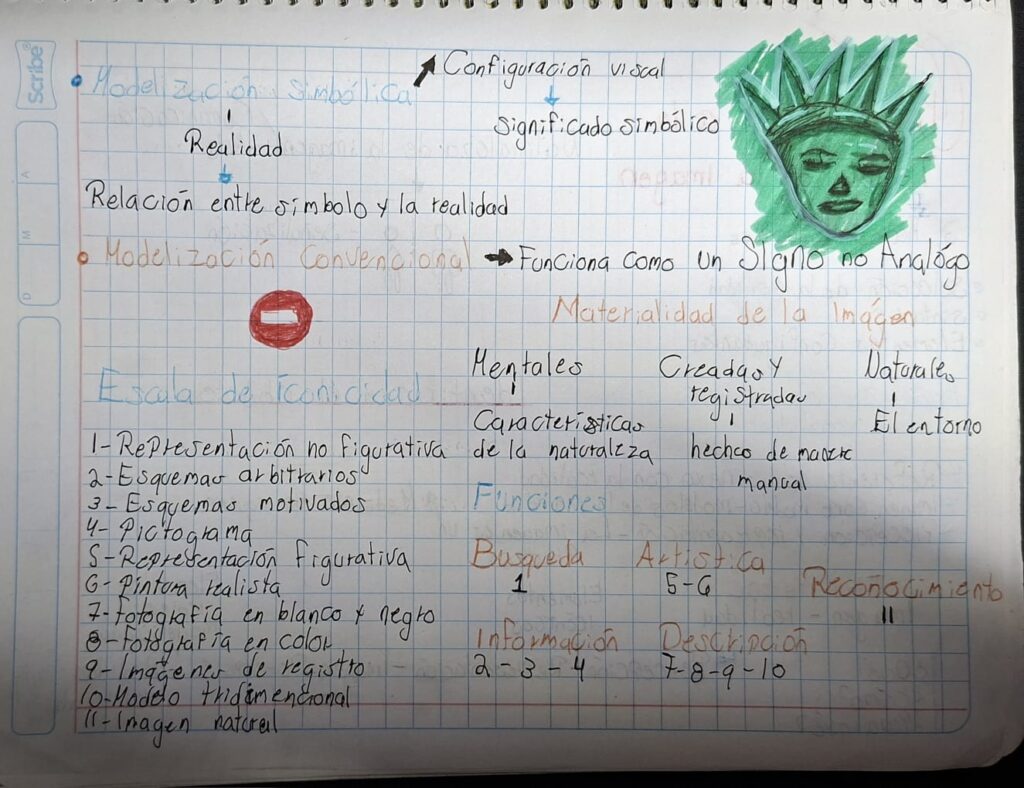 Scribe
D M A
Configuración visual
significado simbólico
• Modelización Simbólica
Realidad
Relación entre simbolo y la realidad
• Modelización Convencional → Funciona como un Signo no Analógo
Materialidad de la Imágen
Mentales
Caracteristicas
de la naturaleza
Creadas y
registradas
hechco de manere
manual
Naturales
El entorno
Escala de iconicidad
1- Representación no figurativa
2- Esquemas arbitrarios
3- Esquemas motivados
4- Pictograma
5- Representación figurativa
6- Pintura realista
7- Fotografía en blanco y negro
8- Fotografía en color
9- Imágenes de registro
10- Modelo tridimencional
11- Imagen natural
Funciones
Busqueda
1
Artistica
5-6
Reconocimiento
11
Información
2-3-4
Descripción
7-8-9-10